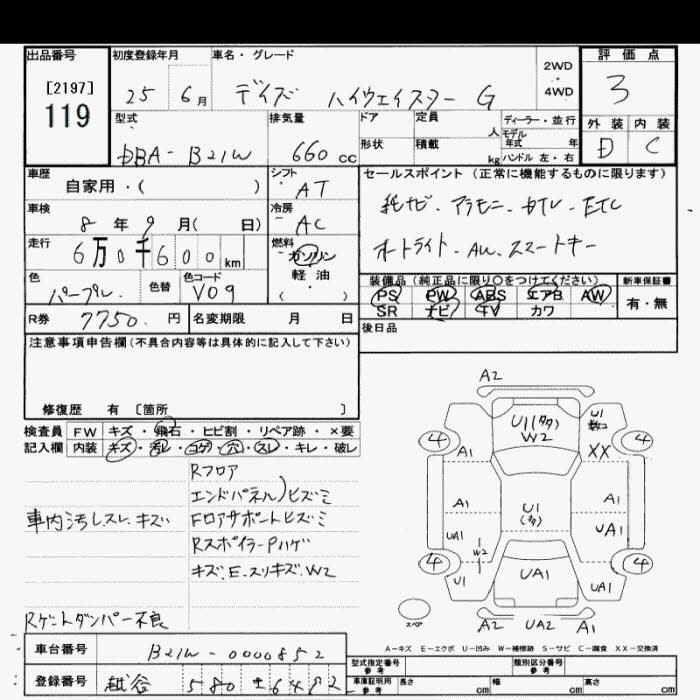 出品番号 初度登録年月 車名・グレード 2WD・4WD 評価点
[2197]
119
25 6月 デイズ ハイウェイスター G 3
型式 排気量 ドア 定員 人 ディーラー・並行 外装 内装
モデル年式 年
DBA-B21W 660cc 形状 積載 kg ハンドル 左・右 D C
車歴 シフト セールスポイント(正常に機能するものに限ります)
自家用・( ) AT
車検 冷房 純ナビ・アラモニ・カTV・ETC
8年9月( 日) AC
走行 燃料 オートライト・AW・スマートキー
6万0千600km ガソリン
軽油
・( )
色 色替 色コード 装備品(純正品に限り○をつけてください) 新車保証書
パープル V09 PS PW ABS エアB AW 有・無
SR ナビ TV カワ
R券 7750円 名変期限 月 日 後日品
注意事項申告欄(不具合内容等は具体的に記入して下さい)
修復歴 有 〔箇所 〕
検査員 FW キズ・飛石・ヒビ割・リペア跡・×要
記入欄 内装 キズ・汚レ・コゲ・穴・スレ・キレ・破レ
Rフロア
エンドパネル)ヒズミ
車内汚レスレ、キズ Fロアサポートヒズミ
RスポイラーPハゲ
キズ、E、スリキズ、W2
Rゲートダンパー不良
A2
U1(タタ)
W2
U1
XX
4 4
A1 A1
A1 U1 A1
UA1 UA1
W2
4 4
U1 UA1 UA1
スペア A2 UA2 A1
A-キズ E-エクボ U-凹み W-補修跡 S-サビ C-腐食 XX-交換済
車台番号 B21W-0000852
型式指定番号 参考 類別区分番号 参考
登録番号 越谷 580
車庫証明用 参考 長さ cm 幅 cm 高さ cm